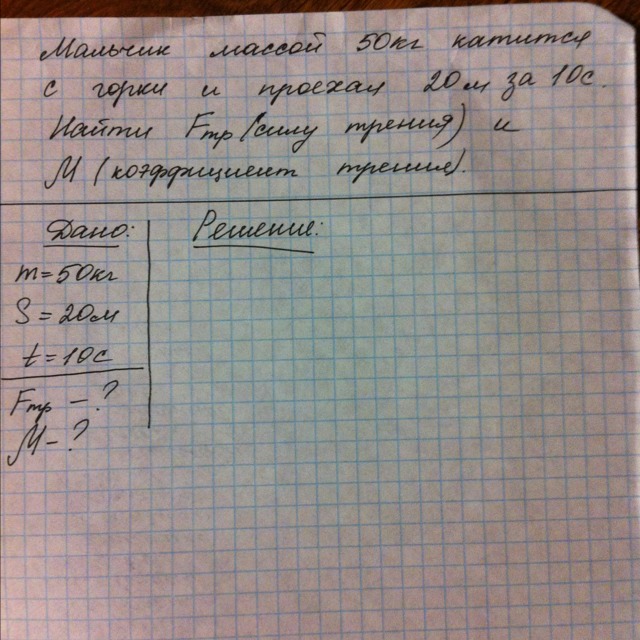 Мальчик массой 50кг катится
с горки и проехал 20м за 10с.
Найти Fтр (силу трения) и
М (коэффициент трения).
Дано:
Решение:
m=50кг
S=20м
t=10с
Fтр – ?
М – ?